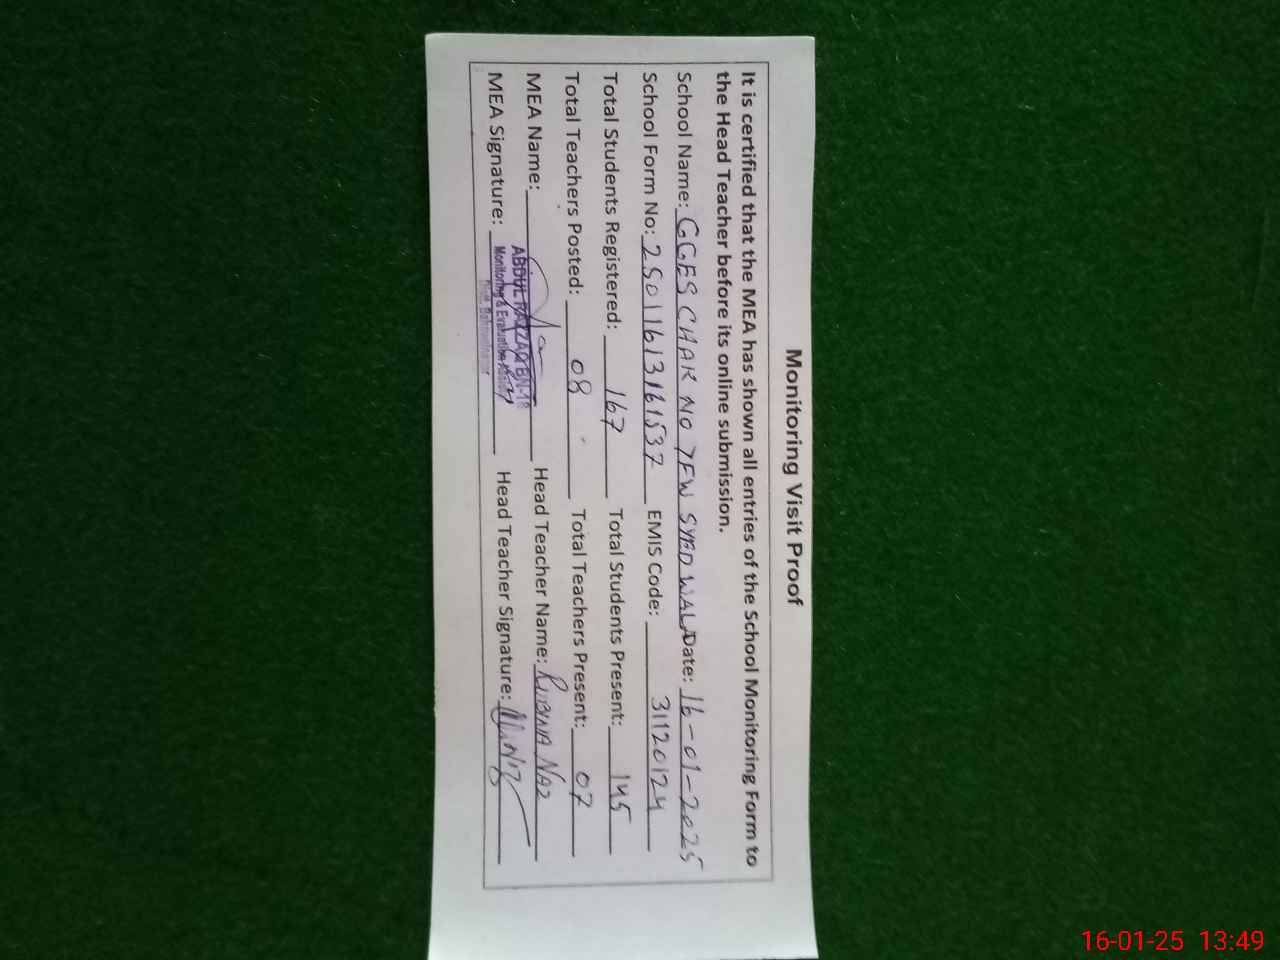 Monitoring Visit Proof
It is certified that the MEA has shown all entries of the School Monitoring Form to
the Head Teacher before its online submission.
School Name: GGES CHAK NO 7FW SYED WALA Date: 16-01-2025
School Form No: 25011613161537 EMIS Code: 31120124
Total Students Registered: 167 Total Students Present: 145
Total Teachers Posted: 08 Total Teachers Present: 07
MEA Name: Head Teacher Name: RUBINA NAZ
ABDUL RAZZAQ BN-18
MEA Signature: Head Teacher Signature:
Monitoring & Evaluation
16-01-25 13:49